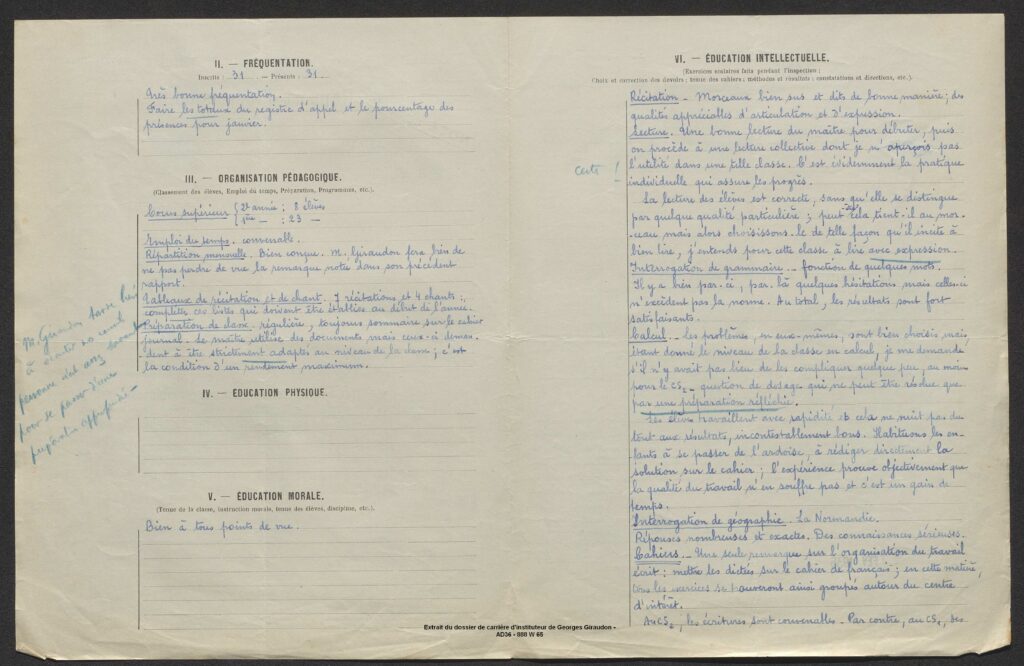 II. — FRÉQUENTATION.
Inscrits : 31 — Présents : 31.
Très bonne fréquentation.
Faire les totaux du registre d'appel et le pourcentage des
présences pour janvier.
III. — ORGANISATION PÉDAGOGIQUE.
(Classement des élèves, Emploi du temps, Préparation, Programmes, etc.).
Cours supérieur { 2e année : 8 élèves
1ère — : 23 —
Emploi du temps. convenable.
Répartition mensuelle. Bien conçue. M. Giraudon fera bien de
ne pas perdre de vue la remarque notée dans son précédent
rapport.
Tableaux de récitation et de chant. 7 récitations et 4 chants :
compléter ces listes qui doivent être établies au début de l'année.
Préparation de classe. régulière, toujours sommaire sur le cahier
journal. Le maître utilise des documents mais ceux-ci deman-
dent à être strictement adaptés au niveau de la classe ; c'est
la condition d'un rendement maximum.
M. Giraudon
à
personne n'est
pour se passer d'une
préparat- approfondie -
IV. — EDUCATION PHYSIQUE.
V. — ÉDUCATION MORALE.
(Tenue de la classe, instruction morale, tenue des élèves, discipline, etc.).
Bien à tous points de vue.
VI. — ÉDUCATION INTELLECTUELLE.
(Exercices scolaires faits pendant l'inspection ;
Choix et correction des devoirs ; tenue des cahiers ; méthodes et résultats ; constatations et directions, etc.).
Récitation - Morceaux bien sus et dits de bonne manière ; des
qualités appréciables d'articulation et d'expression.
Lecture. Une bonne lecture du maître pour débuter, puis
on procède à une lecture collective dont je n'aperçois pas
certes !
l'utilité dans une telle classe. C'est évidemment la pratique
individuelle qui assure les progrès.
La lecture des élèves est correcte, sans qu'elle se distingue
par quelque qualité particulière ; peut-être cela tient-il au mor-
ceau mais alors choisissons-le de telle façon qu'il incite à
bien lire, j'entends pour cette classe à lire avec expression.
Interrogation de grammaire - fonction de quelques mots.
Il y a bien par-ci, par-là quelques hésitations mais celles-ci
n'excèdent pas la norme. Au total, les résultats sont fort
satisfaisants.
Calcul. - les problèmes, en eux-mêmes, sont bien choisis mais,
étant donné le niveau de la classe en calcul, je me demande
s'il n'y avait pas lieu de les compliquer quelque peu, au moins
pour le CS2 - question de dosage qui ne peut être résolue que
par une préparation réfléchie.
Les élèves travaillent avec rapidité et cela ne nuit pas du
tout aux résultats, incontestablement bons. Habituons les en-
fants à se passer de l'ardoise, à rédiger directement la
solution sur le cahier ; l'expérience prouve objectivement que
la qualité du travail n'en souffre pas et c'est un gain de
temps.
Interrogation de géographie. La Normandie.
Réponses nombreuses et exactes. Des connaissances sérieuses.
Cahiers. - Une seule remarque sur l'organisation du travail
écrit : mettre les dictées sur le cahier de français ; en cette matière,
tous les exercices se trouveront ainsi groupés autour du centre
d'intérêt.
Au CS2, les écritures sont convenables - Par contre, au CS1, des
Extrait du dossier de carrière d'instituteur de Georges Giraudon -
AD36 - 888 W 65